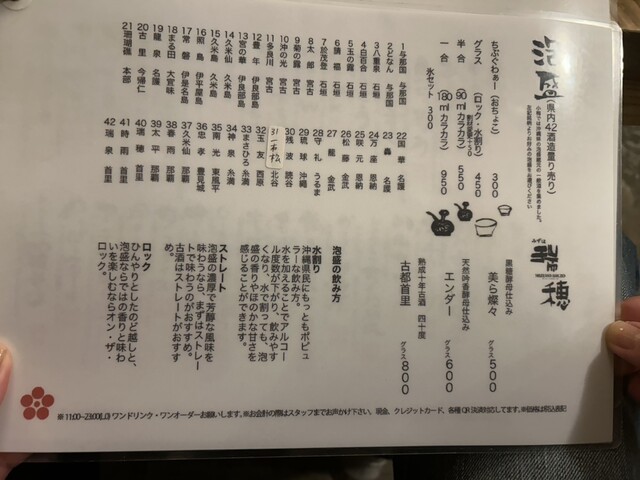 泡盛(県内42酒造量り売り)
小梅では沖縄県の泡盛蔵元の一般酒を集めました。
ちぶぐゎぁー(おちょこ) 300
グラス (ロック・水割り) 450
半合 (90㎖カラカラ) 550
一合 (180㎖カラカラ) 950
氷セット 300
1 与那国 与那国
2 どなん 与那国
3 八重泉 石垣
4 白百合 石垣
5 玉の露 石垣
6 請福 石垣
7 於茂登 石垣
8 太郎 宮古
9 菊の露 宮古
10 沖の光 宮古
11 多良川 宮古
12 豊年 伊良部島
13 宮の華 伊良部島
14 久米仙 久米島
15 久米島 久米島
16 照島 伊平屋島
17 常磐 伊是名島
18 まる田 大宜味
19 龍泉 名護
20 古里 今帰仁
21 珊瑚礁 本部
22 国華 名護
23 轟 名護
24 万座 恩納
25 咲元 恩納
26 松藤 金武
27 龍 金武
28 守礼 うるま
29 琉球 沖縄
30 残波 読谷
31 一本松 北谷
32 玉友 西原
33 まさひろ 糸満
34 神泉 糸満
35 南光 東風平
36 忠孝 豊見城
37 久米仙 那覇
38 春雨 那覇
39 太平 那覇
40 瑞穂 首里
41 時雨 首里
42 瑞泉 首里
みずほ
瑞穂
黒糖酵母仕込み
美ら燦々 グラス 500
天然吟香酵母仕込み
エンダー グラス 600
熟成十年古酒 四十度
古都首里 グラス 800
泡盛の飲み方
水割り
沖縄県民にもっともポピュ
ラーな飲み方。
水を加えることでアルコー
ル度数が下がり、飲みやす
くなり、水で割っても、泡
盛の香りやほのかな甘さを
感じることができます。
ストレート
泡盛の濃厚で芳醇な風味を
味わうなら、まずはストレー
トで味わうのがおすすめ。
古酒はストレートがおすす
め。
ロック
ひんやりとしたのど越しと、
泡盛ならではの香りと味わ
いを楽しむならオン・ザ・
ロック。
※11:00~23:00(L.O)ワンドリンク・ワンオーダーお願いします。※お会計の際はスタッフまでお声かけ下さい。現金、クレジットカード、各種QR決済対応してます。※価格は税込表記